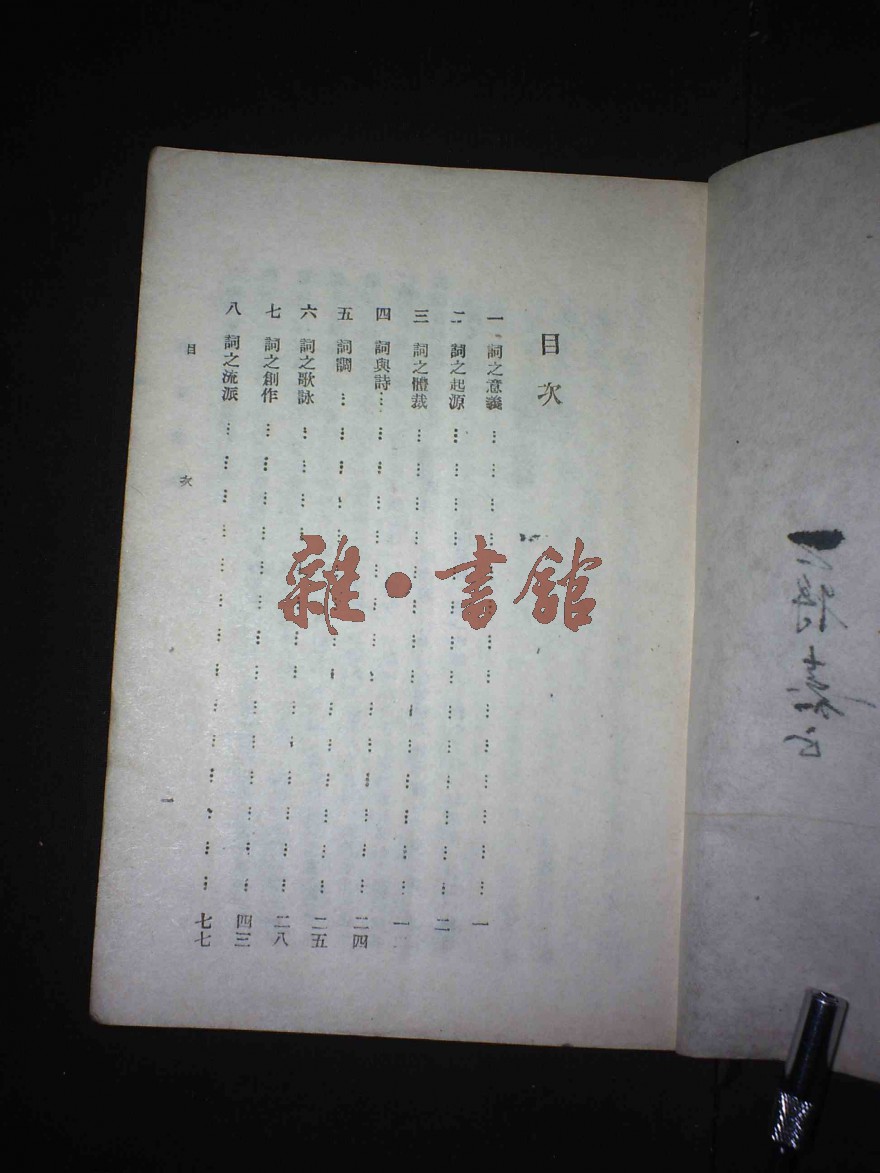 目次
一 詞之意義 一
二 詞之起源 二
三 詞之體裁
四 詞與詩 二四
五 詞調 二五
六 詞之歌詠 二八
七 詞之創作 四三
八 詞之流派 七七
目次
一
雜·書館